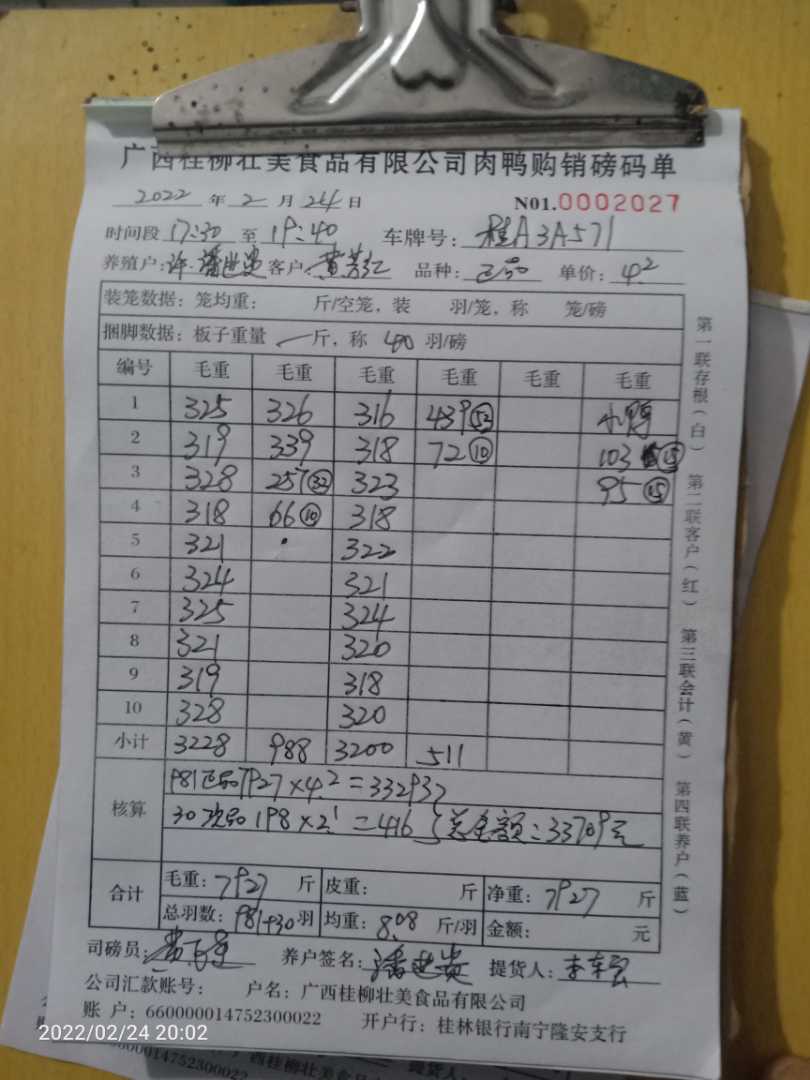 广西桂柳壮美食品有限公司肉鸭购销磅码单
2022 年 2 月 24 日 N01.0002027
时间段 17:30 至 19:40 车牌号: 桂A3A571
养殖户: 许·潘世贵 客户: 黄芳红 品种: 正品 单价: 4.2
装笼数据: 笼均重: 斤/空笼, 装 羽/笼, 称 笼/磅
捆脚数据: 板子重量 一 斤, 称 40 羽/磅
编号 毛重 毛重 毛重 毛重 毛重 毛重
1 325 326 316 439(52) 小鸭
2 319 339 318 72(10) 103 (15)
3 328 257(32) 323 95(15)
4 318 66(10) 318
5 321 322
6 324 321
7 325 324
8 321 320
9 319 318
10 328 320
小计 3228 988 3200 511
核算
981正品7927×4.2=33293
30次品198×2.1=416 }总金额:33709元
合计
毛重: 7927 斤 皮重: 斤 净重: 7927 斤
总羽数: 981+30 羽 均重: 8.08 斤/羽 金额: 元
司磅员: 养户签名: 潘世贵 提货人:
公司汇款账号: 户名: 广西桂柳壮美食品有限公司
账 户: 660000014752300022 开户行: 桂林银行南宁隆安支行
第一联存根(白) 第二联客户(红) 第三联会计(黄) 第四联养户(蓝)
2022/02/24 20:02
660000014752300022